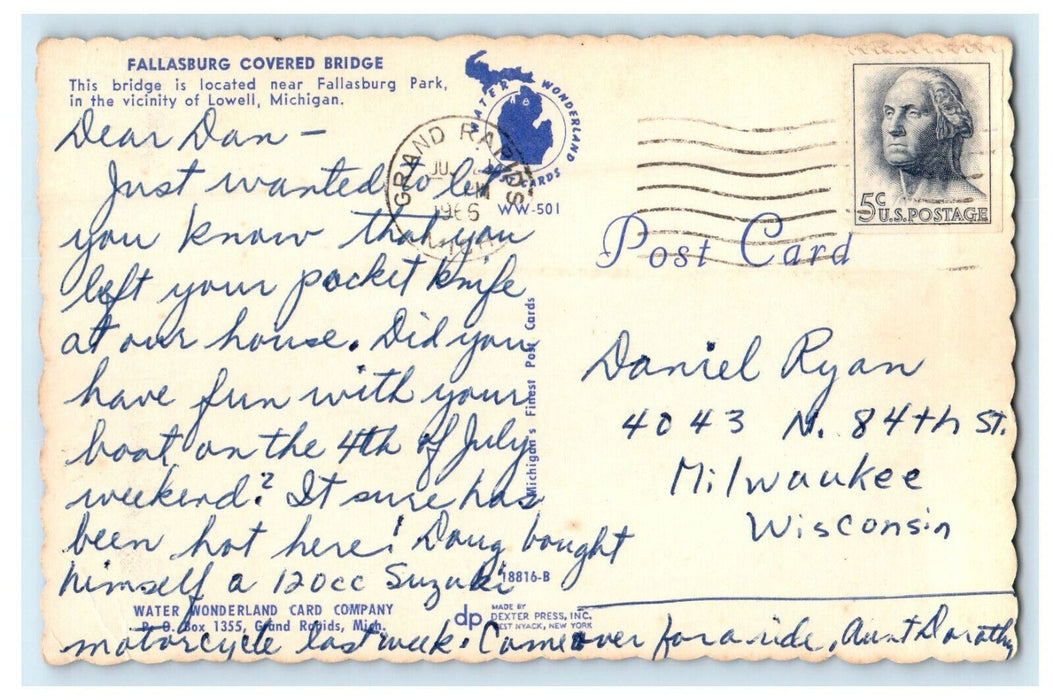 FALLASBURG COVERED BRIDGE
This bridge is located near Fallasburg Park,
in the vicinity of Lowell, Michigan.
Dear Dan -
Just wanted to let
you know that you
left your pocket knife
at our house. Did you
have fun with your
boat on the 4th of July
weekend? It sure has
been hot here! Doug bought
himself a 120cc Suzuki
motorcycle last week. Come over for a ride, Aunt Dorothy
WATER WONDERLAND CARD COMPANY
P. O. Box 1355, Grand Rapids, Mich.
WATER WONDERLAND
POST CARDS
WW-501
GRAND RAPIDS
1966
MICH
Michigan's Finest Post Cards
18816-B
dp
MADE BY
DEXTER PRESS, INC.
WEST NYACK, NEW YORK
5c
U.S. POSTAGE
Post Card
Daniel Ryan
4043 N. 84th St.
Milwaukee
Wisconsin